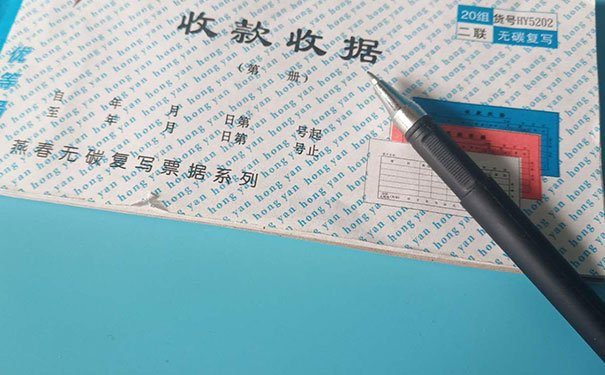 20组 货号HY5202
二联 无碳复写
收款收据
(第 册)
优等
自 年 月 日第 号起
至 年 月 日第 号止
燕春无碳复写票据系列
hong yan hong yan hong yan hong yan